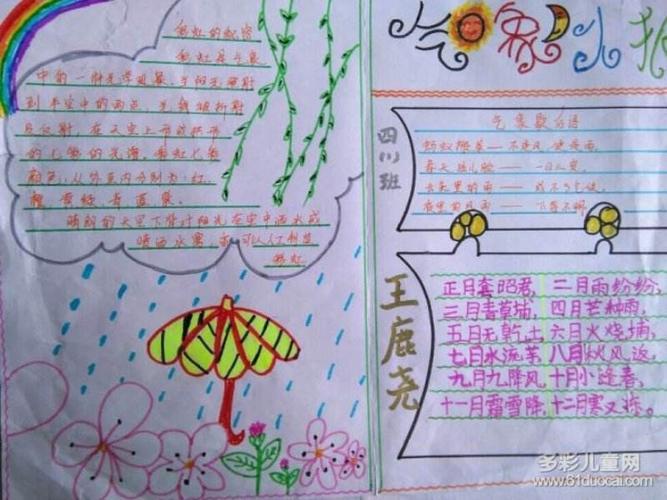 彩虹的秘密
彩虹是气象
中的一种光学现象。当阳光照射
到半空中的雨点，光线被折射
及反射，在天空上形成拱形
的七彩的光谱。彩虹七彩
颜色，从外至内分别为：红、
橙、黄、绿、青、蓝、紫。
晴朗的天空下背对阳光在空中洒水或
喷洒水雾，亦可以人工制造
彩虹
气象
小报
四川班
王鹿尧
气象歇后语
春天孩儿脸——一日三变
正月奎昭君，二月雨纷纷，
三月青草埔，四月芒种雨，
五月无乾土，六月火烧埔，
七月水流羊，八月秋风返，
九月九降风，十月小逢春，
十一月霜雪降，十二月寒又冻。
多彩儿童网
www.61duocai.com